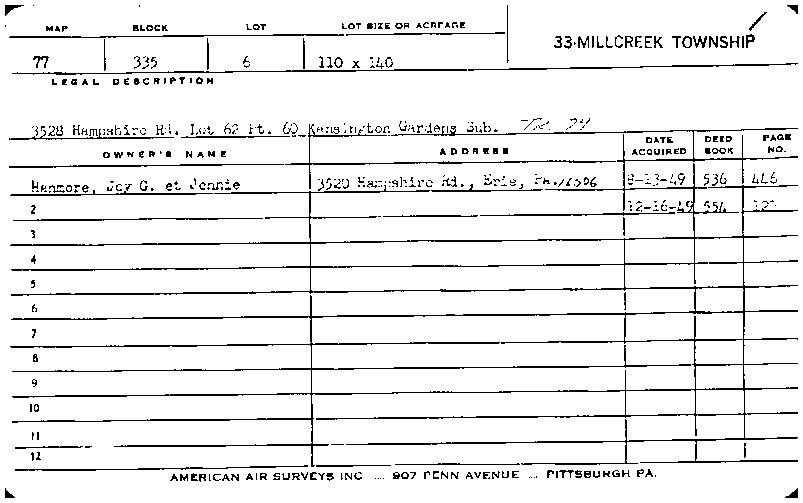 MAP BLOCK LOT LOT SIZE OR ACREAGE
33-MILLCREEK TOWNSHIP
77 335 6 110 x 140
LEGAL DESCRIPTION
3528 Hampshire Rd. Lot 62 Pt. 60 Kensington Gardens Sub. 74
OWNER'S NAME ADDRESS DATE ACQUIRED DEED BOOK PAGE NO.
Hanmore, Joy G. et Jennie 3520 Hampshire Rd., Erie, PA. 16506 8-13-49 536 446
2 12-16-49 554
3
4
5
6
7
8
9
10
11
12
AMERICAN AIR SURVEYS INC .... 907 PENN AVENUE .... PITTSBURGH PA.